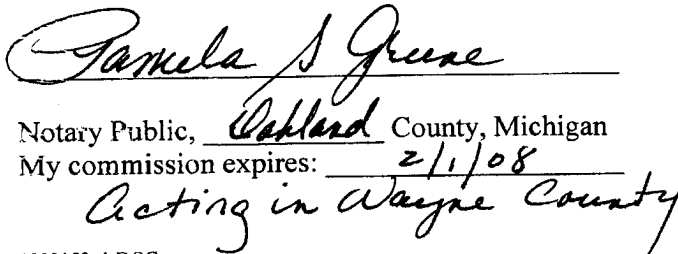 Pamela S Greene
Notary Public, Oakland County, Michigan
My commission expires: 2/1/08
Acting in Wayne County